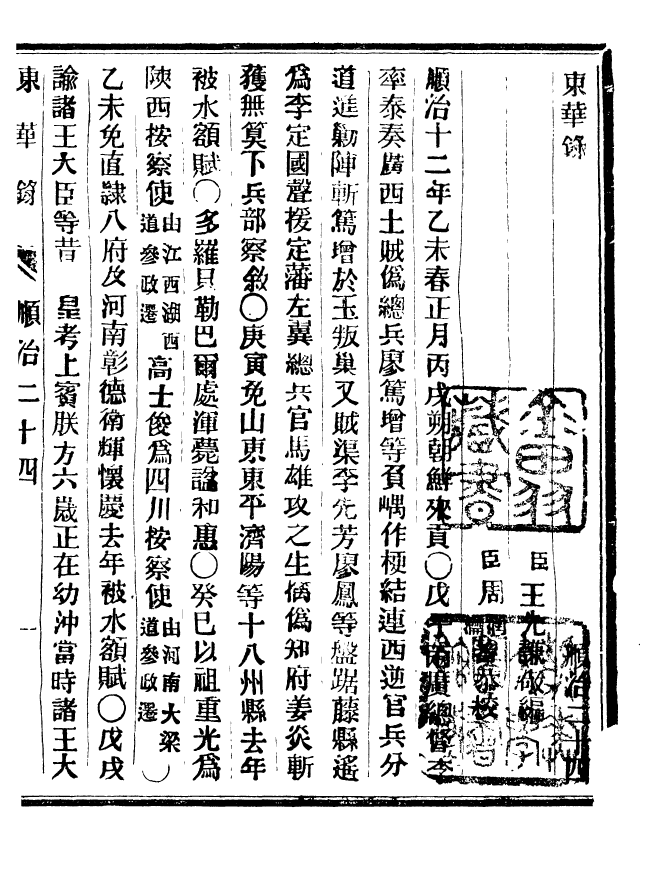 東華錄
順治二十四
臣王先謙敬編
臣周潤蕃恭校
順治十二年乙未春正月丙戌朔朝鮮來貢○戊子兩廣總督李
率泰奏廣西土賊僞總兵廖篤增等負嵎作梗結連西逆官兵分
道進勦陣斬篤增於玉叛巢又賊渠李先芳廖鳳等盤踞藤縣遙
爲李定國聲援定藩左翼總兵官馬雄攻之生俑僞知府姜炎斬
獲無算下兵部察敘○庚寅免山東東平濟陽等十八州縣去年
被水額賦○多羅貝勒巴爾處渾薨諡和惠○癸巳以祖重光爲
陝西按察使由江西湖西道參政遷高士俊爲四川按察使由河南大梁道參政遷○
乙未免直隷八府及河南彰德衛輝懷慶去年被水額賦○戊戌
諭諸王大臣等昔 皇考上賓朕方六歲正在幼沖當時諸王大
東華錄 順治二十四 一